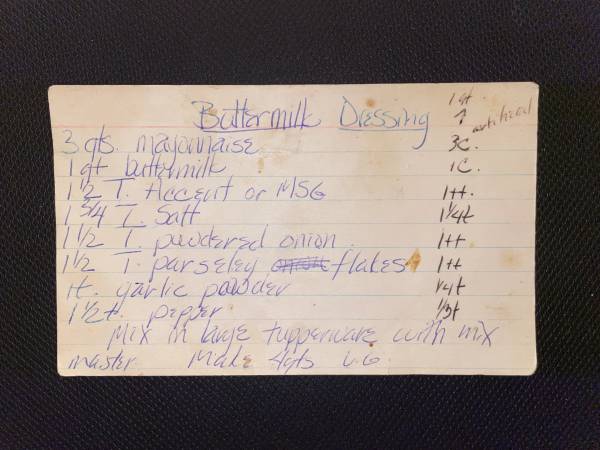 Buttermilk Dressing 1 qt
3 qts. mayonnaise 3c.
1 qt buttermilk 1c.
1 1/2 T. Accent or MSG 1tt.
1 3/4 T. Salt 1 1/4t
1 1/2 T. powdered onion 1tt
1 1/2 T. parseley flakes 1tt
1t. garlic powder 1/4t
1 1/2t. pepper 1/3t
Mix in large tupperware with mix
master. Make 4qts